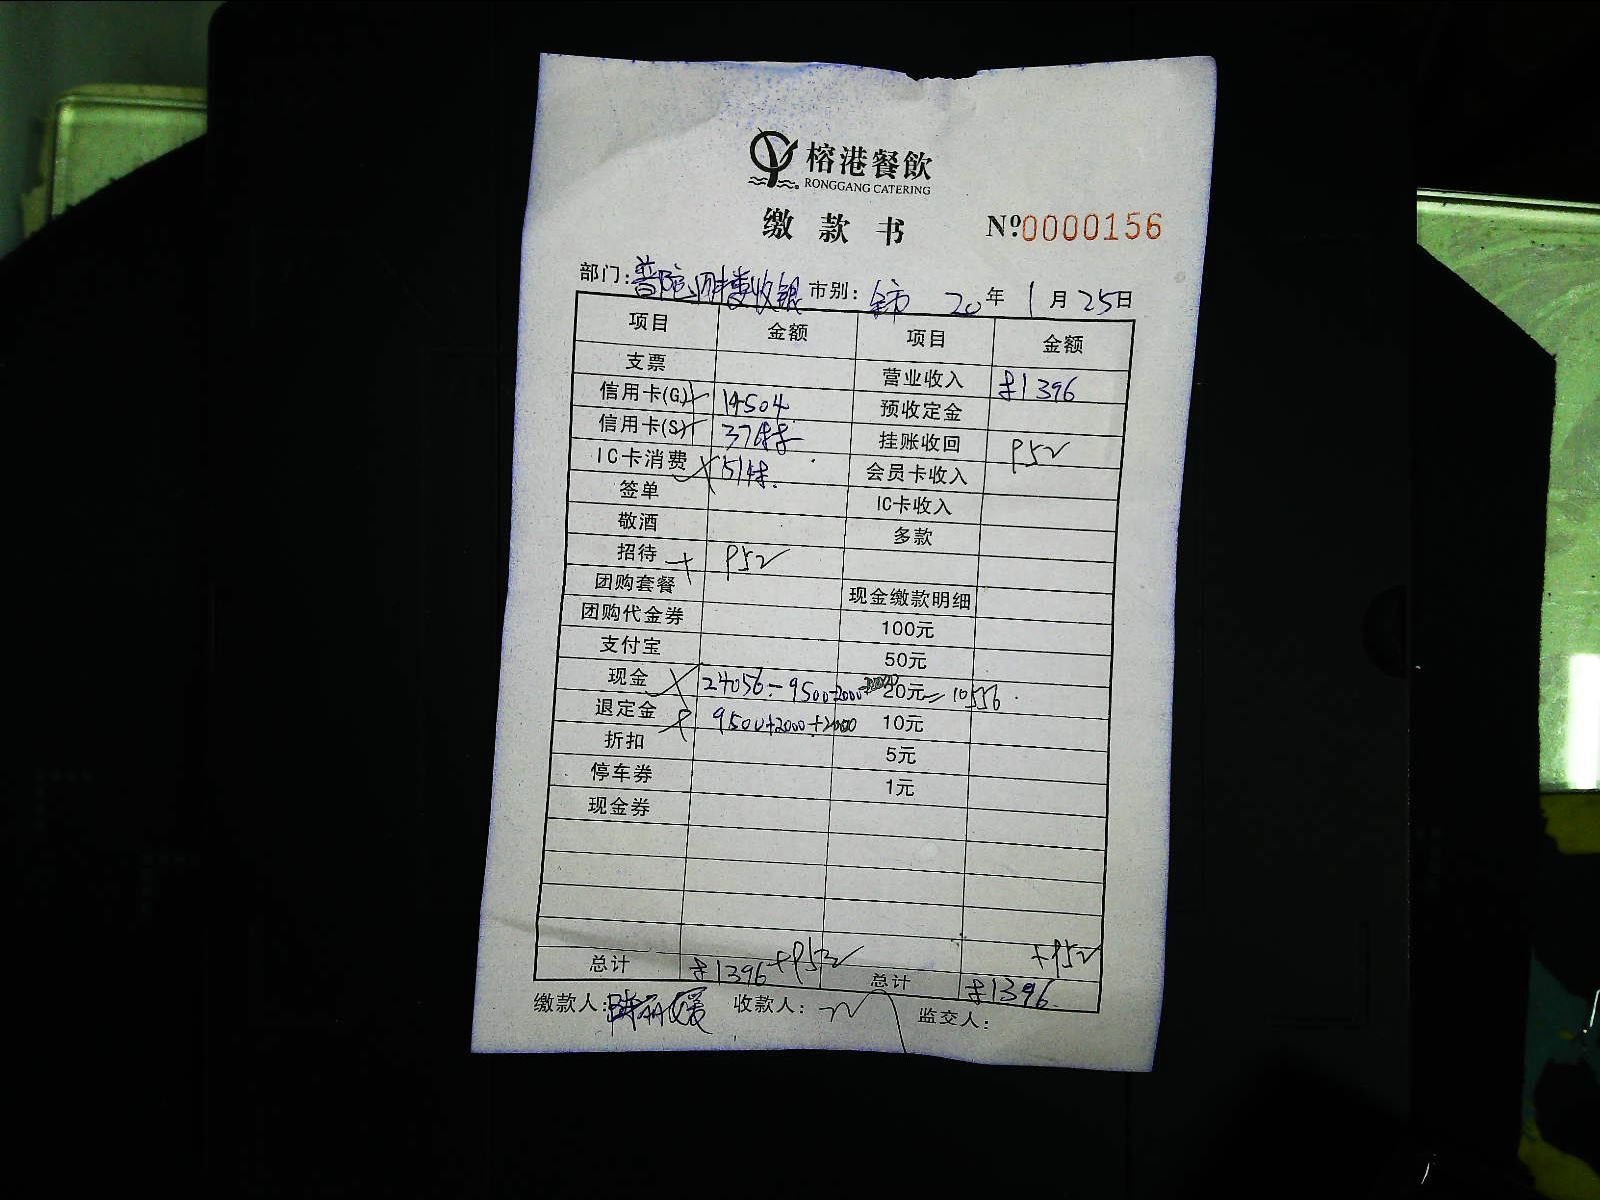 榕港餐飲
RONGGANG CATERING
缴款书 №0000156
部门:普陀 收银 市别: 全市 20年1月25日
项目 金额 项目 金额
支票 营业收入 81396
信用卡(G) 14504 预收定金
信用卡(S) 挂账收回 952
IC卡消费 会员卡收入
签单 IC卡收入
敬酒 多款
招待 952
团购套餐 现金缴款明细
团购代金券 100元
支付宝 50元
现金 24056-9500-2000-2000 20元 =10556
退定金 9500+2000+2000 10元
折扣 5元
停车券 1元
现金券
总计 81396+952 总计 81396 +952
缴款人: 收款人: 监交人: